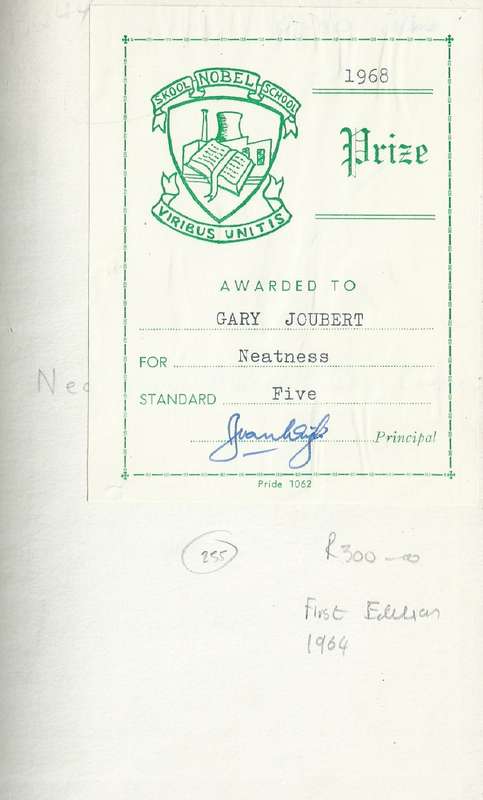 SKOOL NOBEL SCHOOL
VIRIBUS UNITIS
1968
Prize
AWARDED TO
GARY JOUBERT
FOR Neatness
STANDARD Five
Principal
Pride 1062
Nea
255
R300-00
First Edition
1964